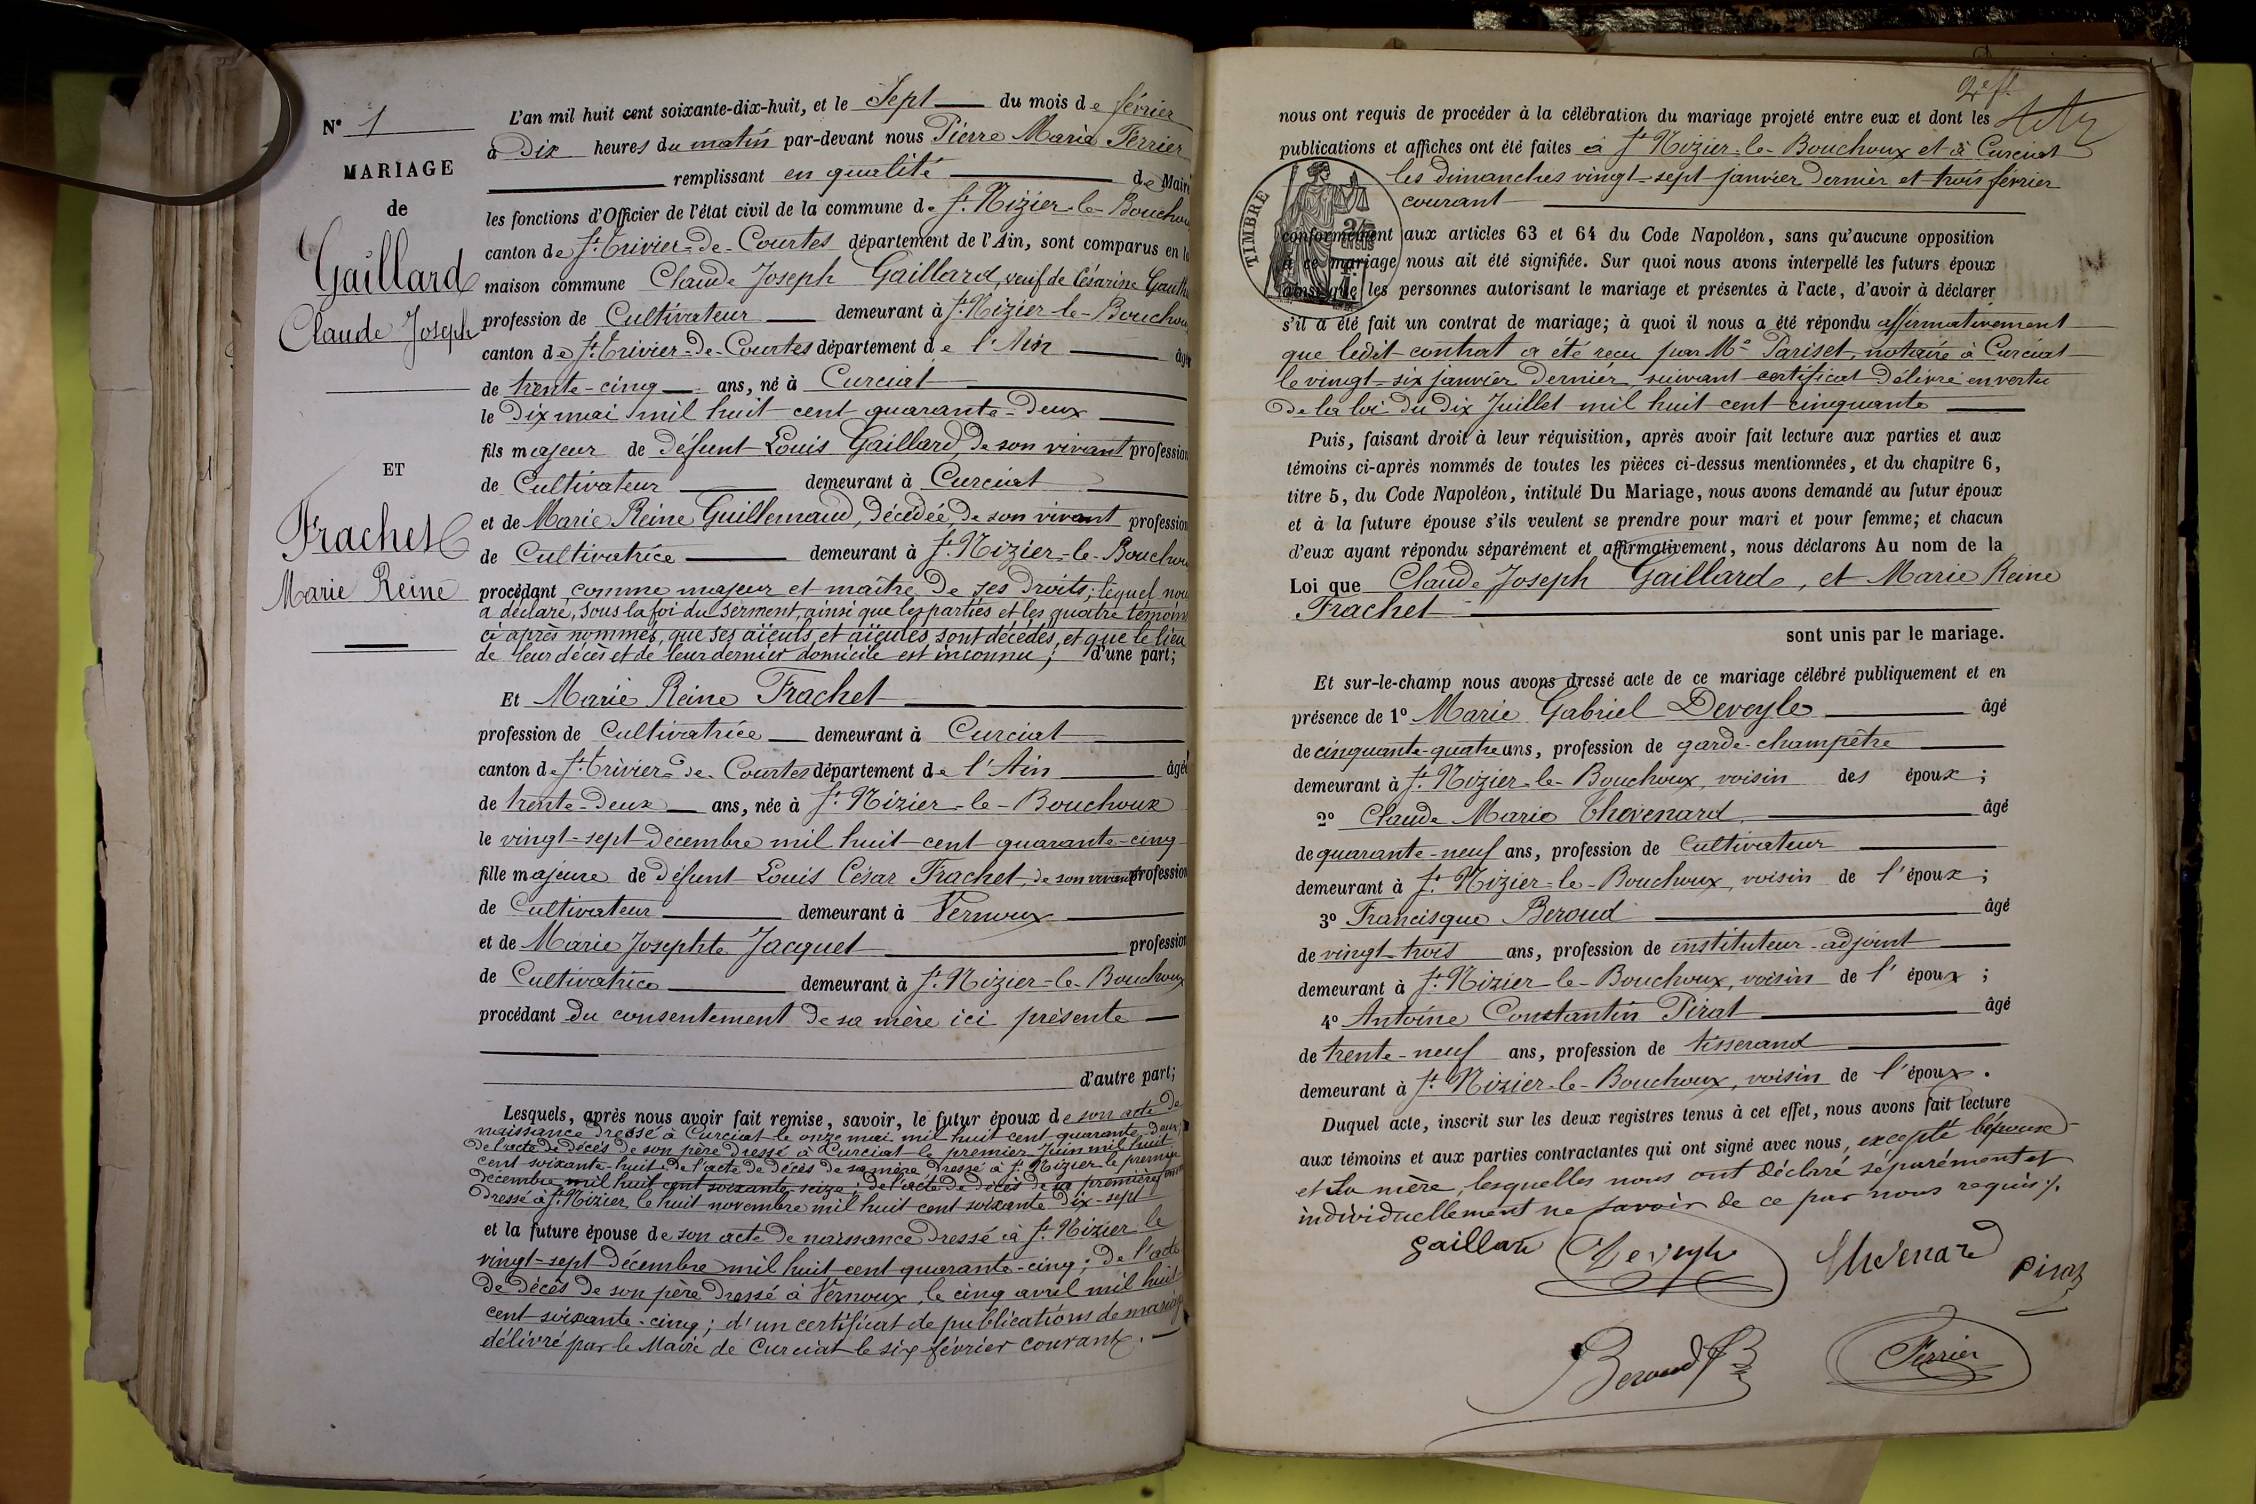 N° 1
MARIAGE
de
Gaillard
Claude Joseph
ET
Frachet
Marie Reine
L'an mil huit cent soixante-dix-huit, et le Sept du mois de février
à Dix heures du matin par-devant nous Pierre Marie Ferrier
remplissant en qualité de Maire
les fonctions d'Officier de l'état civil de la commune de St Nizier-le-Bouchoux
canton de St Trivier-de-Courtes département de l'Ain, sont comparus en la
maison commune Claude Joseph Gaillard, veuf de Césarine
profession de Cultivateur demeurant à St Nizier-le-Bouchoux
canton de St Trivier-de-Courtes département de l'Ain âgé
de trente-cinq ans, né à Curciat
le dix mai mil huit cent quarante-deux
fils majeur de défunt Louis Gaillard, de son vivant profession
de Cultivateur demeurant à Curciat
et de Marie Reine Guillemaud, décédée, de son vivant profession
de Cultivatrice demeurant à St Nizier-le-Bouchoux
procédant comme majeur et maître de ses droits; lequel nous
a déclaré, sous la foi du serment, ainsi que les parties et les quatre témoins
ci après nommés, que ses aïeuls et aïeules sont décédés, et que le lieu
de leur décès et de leur dernier domicile est inconnu; d'une part;
Et Marie Reine Frachet
profession de Cultivatrice demeurant à Curciat
canton de St Trivier-de-Courtes département de l'Ain âgée
de trente-deux ans, née à St Nizier-le-Bouchoux
le vingt-sept décembre mil huit cent quarante-cinq
fille majeure de défunt Louis César Frachet, de son vivant profession
de Cultivateur demeurant à Vernoux
et de Marie Josephte Jacquet profession
de Cultivatrice demeurant à St Nizier-le-Bouchoux
procédant du consentement de sa mère ici présente
d'autre part;
Lesquels, après nous avoir fait remise, savoir, le futur époux de son acte de
naissance dressé à Curciat le onze mai mil huit cent quarante-deux;
de l'acte de décès de son père dressé à Curciat le premier Juin mil huit
cent soixante-huit; de l'acte de décès de sa mère dressé à St Nizier le premier
décembre mil huit cent soixante-seize; de l'acte de décès de sa première femme
dressé à St Nizier le huit novembre mil huit cent soixante-dix-sept
et la future épouse de son acte de naissance dressé à St Nizier le
vingt-sept décembre mil huit cent quarante-cinq; de l'acte
de décès de son père dressé à Vernoux le cinq avril mil huit
cent soixante-cinq; d'un certificat de publications de mariage
délivré par le Maire de Curciat le six février courant.
nous ont requis de procéder à la célébration du mariage projeté entre eux et dont les
publications et affiches ont été faites à St Nizier-le-Bouchoux et à Curciat
les dimanches vingt-sept janvier dernier et trois février
courant
TIMBRE
conformément aux articles 63 et 64 du Code Napoléon, sans qu'aucune opposition
à ce mariage nous ait été signifiée. Sur quoi nous avons interpellé les futurs époux
ainsi que les personnes autorisant le mariage et présentes à l'acte, d'avoir à déclarer
s'il a été fait un contrat de mariage; à quoi il nous a été répondu affirmativement
que ledit contrat a été reçu par Me Pariset, notaire à Curciat
le vingt-six janvier dernier suivant certificat délivré en vertu
de la loi du dix Juillet mil huit cent cinquante
Puis, faisant droit à leur réquisition, après avoir fait lecture aux parties et aux
témoins ci-après nommés de toutes les pièces ci-dessus mentionnées, et du chapitre 6,
titre 5, du Code Napoléon, intitulé Du Mariage, nous avons demandé au futur époux
et à la future épouse s'ils veulent se prendre pour mari et pour femme; et chacun
d'eux ayant répondu séparément et affirmativement, nous déclarons Au nom de la
Loi que Claude Joseph Gaillard, et Marie Reine
Frachet
sont unis par le mariage.
Et sur-le-champ nous avons dressé acte de ce mariage célébré publiquement et en
présence de 1° Marie Gabriel Deveyle âgé
de cinquante-quatre ans, profession de garde-champêtre
demeurant à St Nizier-le-Bouchoux, voisin des époux;
2° Claude Marie Thévenard âgé
de quarante-neuf ans, profession de Cultivateur
demeurant à St Nizier-le-Bouchoux, voisin de l'époux;
3° Francisque Beroud âgé
de vingt-trois ans, profession de instituteur-adjoint
demeurant à St Nizier-le-Bouchoux, voisin de l'époux;
4° Antoine Constantin Pirat âgé
de trente-neuf ans, profession de tisserand
demeurant à St Nizier-le-Bouchoux, voisin de l'époux.
Duquel acte, inscrit sur les deux registres tenus à cet effet, nous avons fait lecture
aux témoins et aux parties contractantes qui ont signé avec nous, excepté l'épouse
et la mère, lesquelles nous ont déclaré séparément et
individuellement ne savoir de ce par nous requis.
gaillard Deveyle Thévenard Pirat
Beroud Ferrier